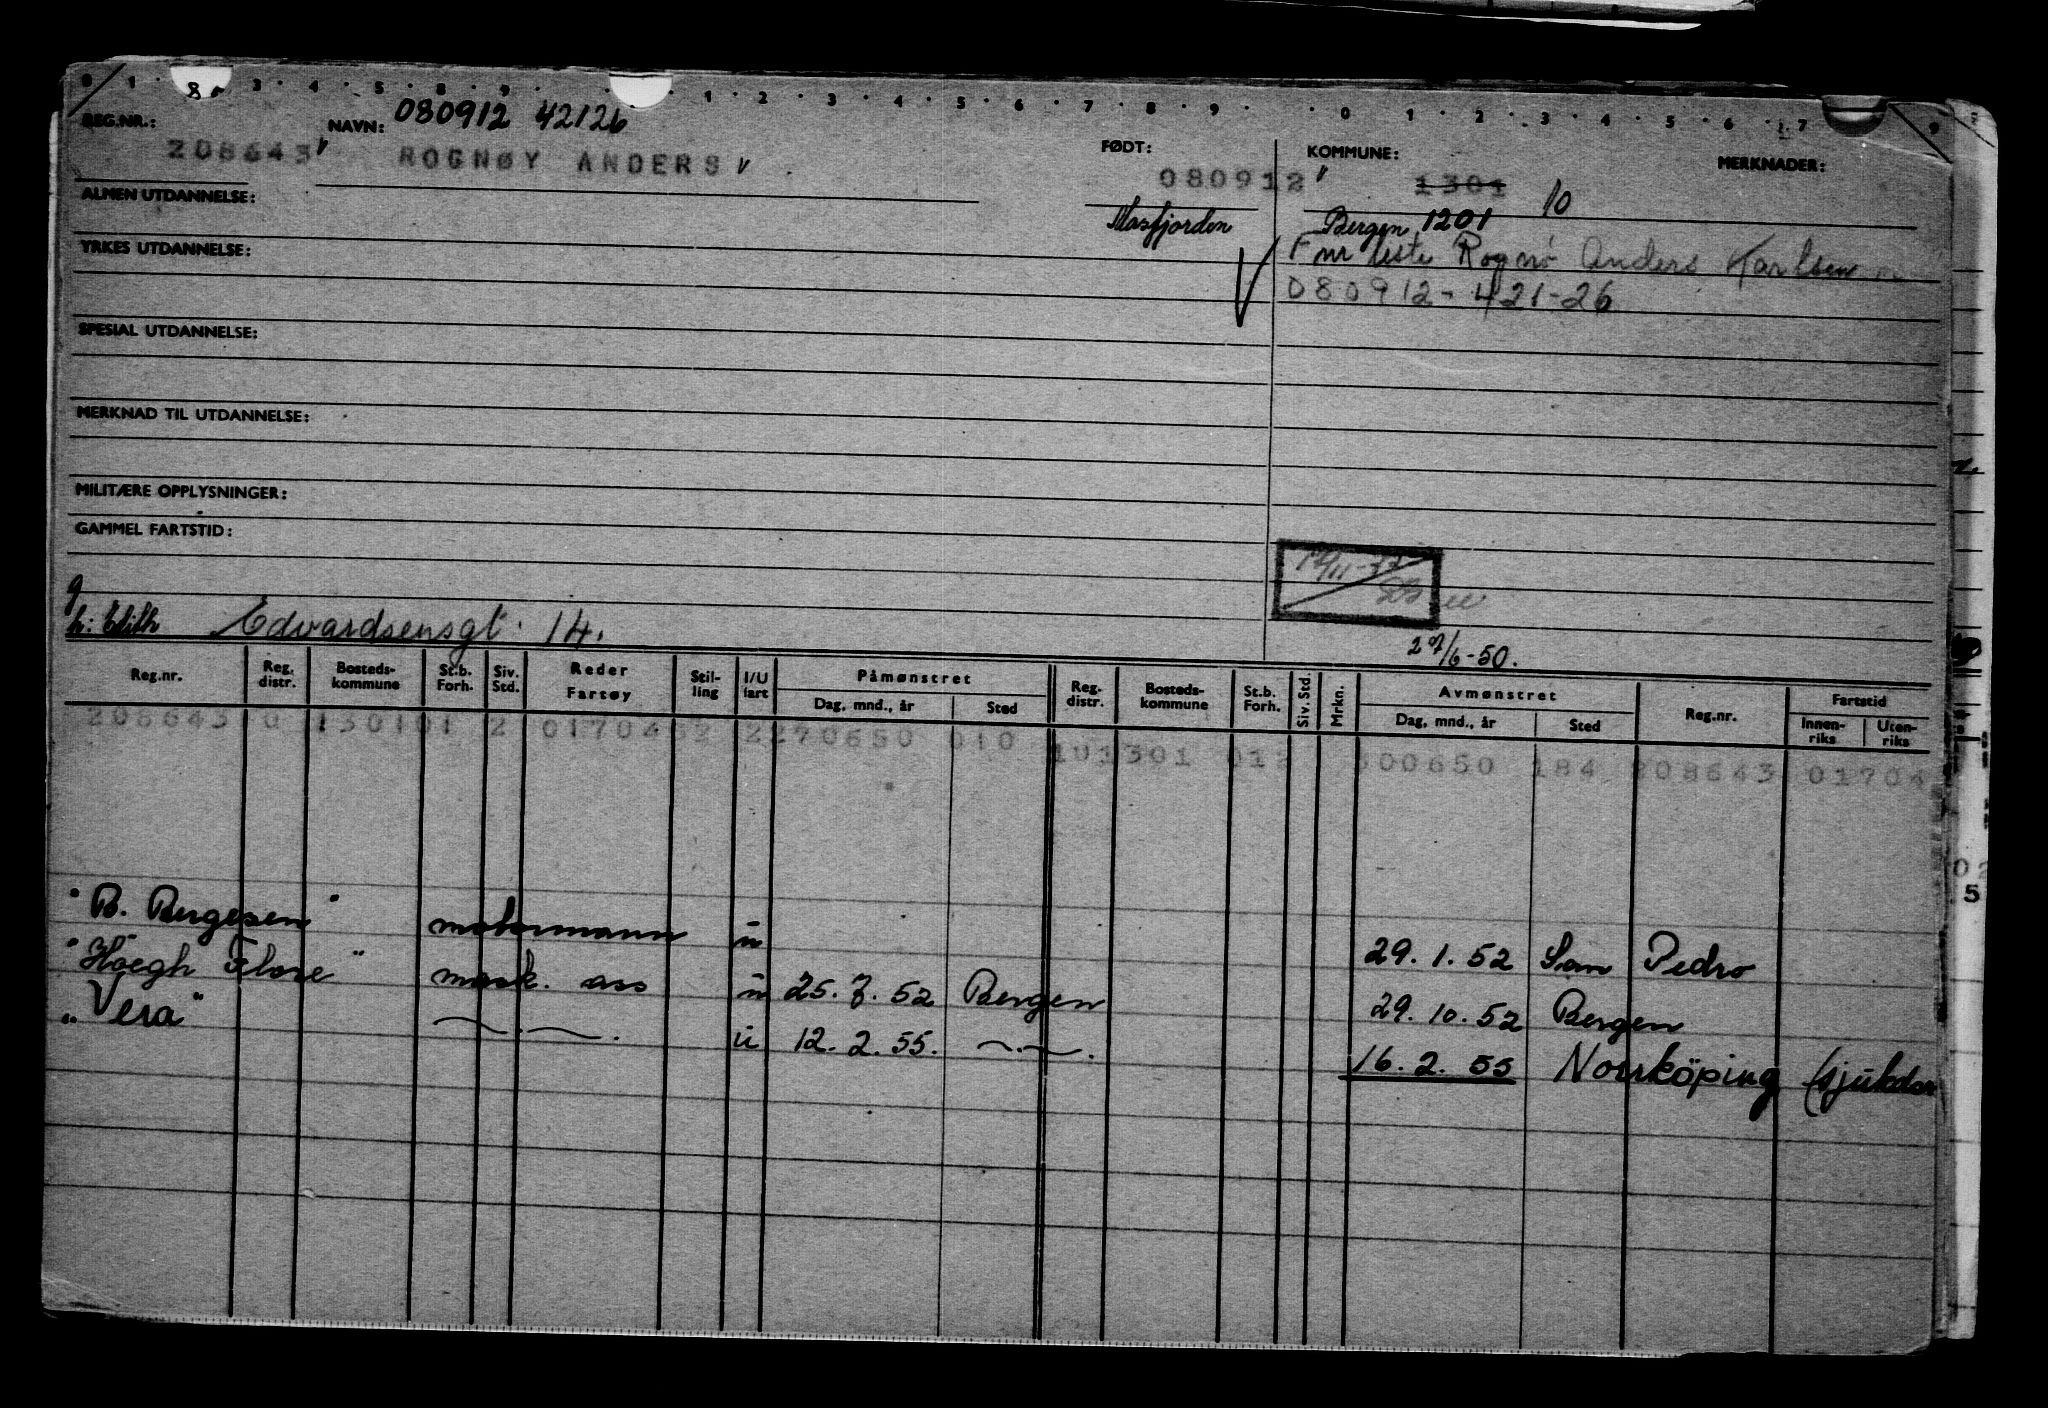 0 1 8 3 4 5 8 9 1 2 3 4 5 6 7 8 9 0 1 2 3 4 5 6 7 9
REG.NR.: NAVN: 080912 42126 FØDT: KOMMUNE: MERKNADER:
208643 ROGNØY ANDERS 080912 1301 10
ALMEN UTDANNELSE: Masfjorden Bergen 1201
YRKES UTDANNELSE: Fnr liste Rognø Anders Karlsen
080912-421-26
SPESIAL UTDANNELSE:
MERKNAD TIL UTDANNELSE:
MILITÆRE OPPLYSNINGER:
GAMMEL FARTSTID:
g
h: Edith Edvardsensgt. 14.
29/6-50.
Reg.nr. Reg. distr. Bosteds-kommune St.b. Forh. Siv. Std. Reder Fartøy Stil-ling I/U fart Påmønstret Dag, mnd., år Sted Reg. distr. Bosteds-kommune St.b. Forh. Siv. Std. Mrkn. Avmønstret Dag, mnd., år Sted Reg.nr. Fartstid Innen-riks Uten-riks
208643 0 130101 2 01704 2 2270650 010 101301 012 300650 184 208643 01704
"B. Bergesen" motormann u 29.1.52 San Pedro
"Höegh Clare" mask. ass u 25.7.52 Bergen 29.10.52 Bergen
"Vera" —.—. u 12.2.55. —.—. 16.2.55 Norrköping (sjukdom
02
5